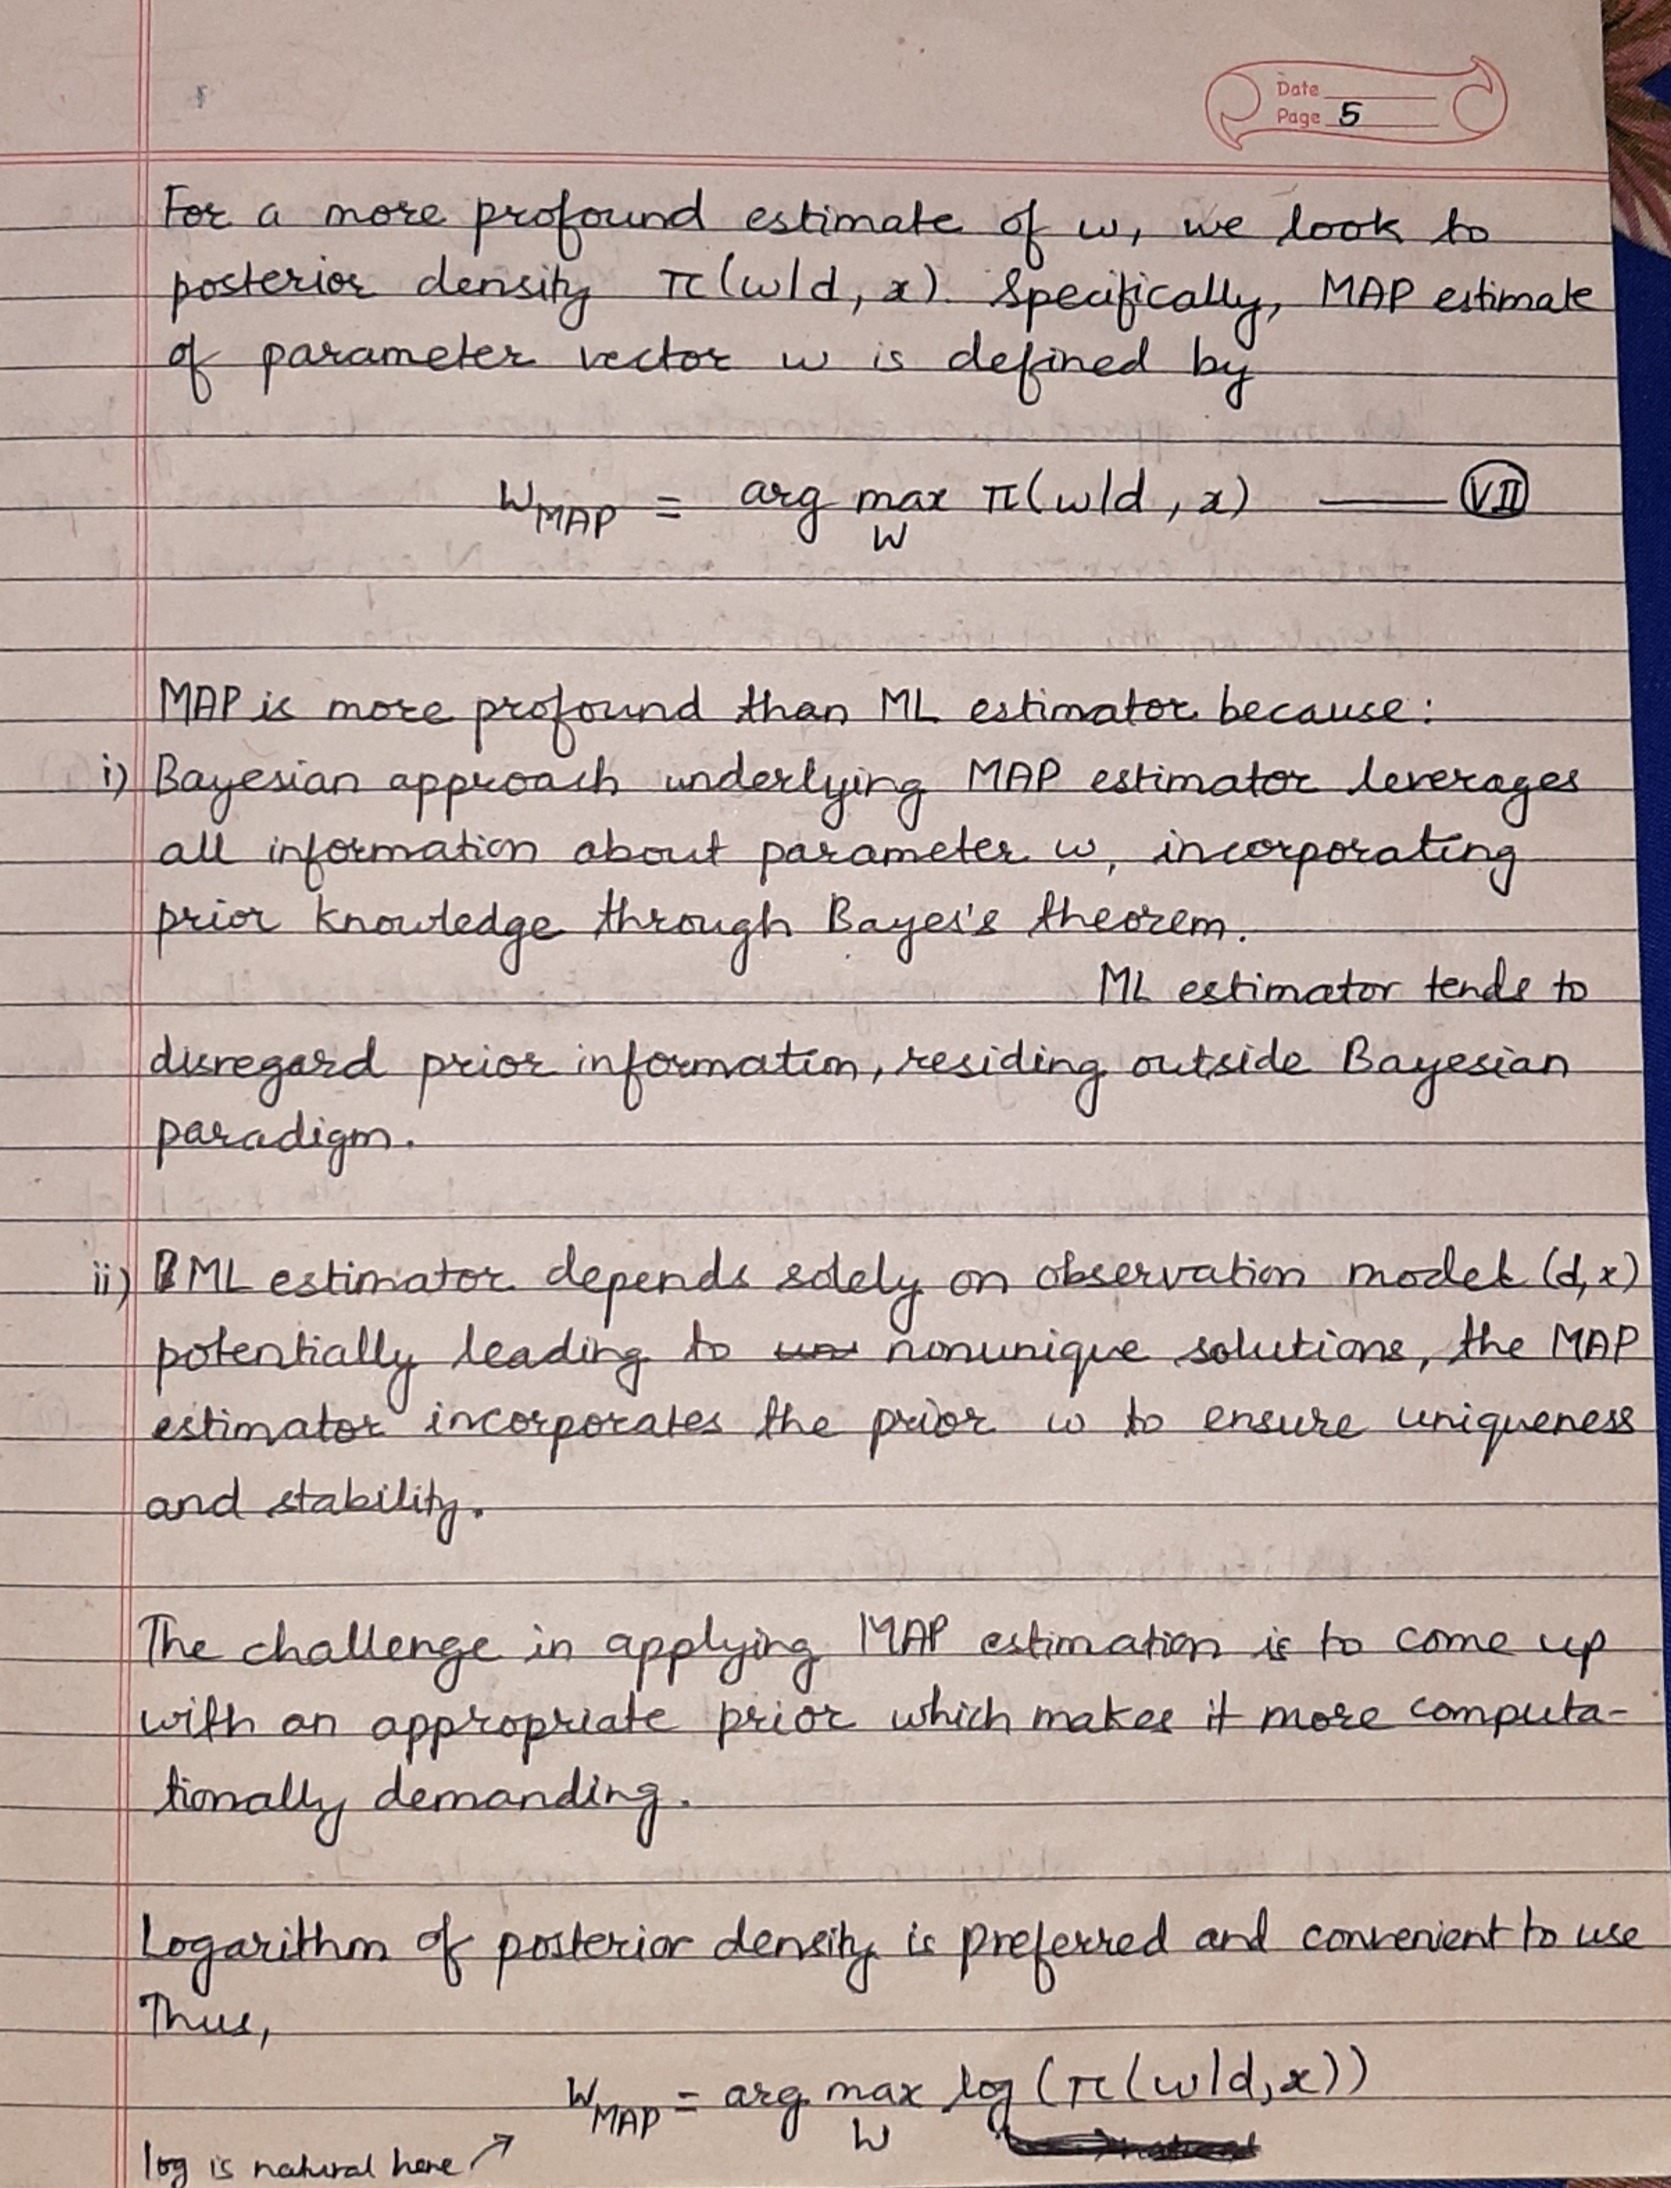 Date
Page 5
For a more profound estimate of w, we look to
posterior density π(w/d, x). Specifically, MAP estimate
of parameter vector w is defined by
W_MAP = arg max_W π(w/d, x) —— VII
MAP is more profound than ML estimator because:
i) Bayesian approach underlying MAP estimator leverages
all information about parameter w, incorporating
prior knowledge through Bayes's theorem.
ML estimator tends to
disregard prior information, residing outside Bayesian
paradigm.
ii) ML estimator depends solely on observation model (d, x)
potentially leading to nonunique solutions, the MAP
estimator incorporates the prior w to ensure uniqueness
and stability.
The challenge in applying MAP estimation is to come up
with an appropriate prior which makes it more computa-
tionally demanding.
Logarithm of posterior density is preferred and convenient to use
Thus,
W_MAP = arg max_W log (π(w/d, x))
log is natural here ↗